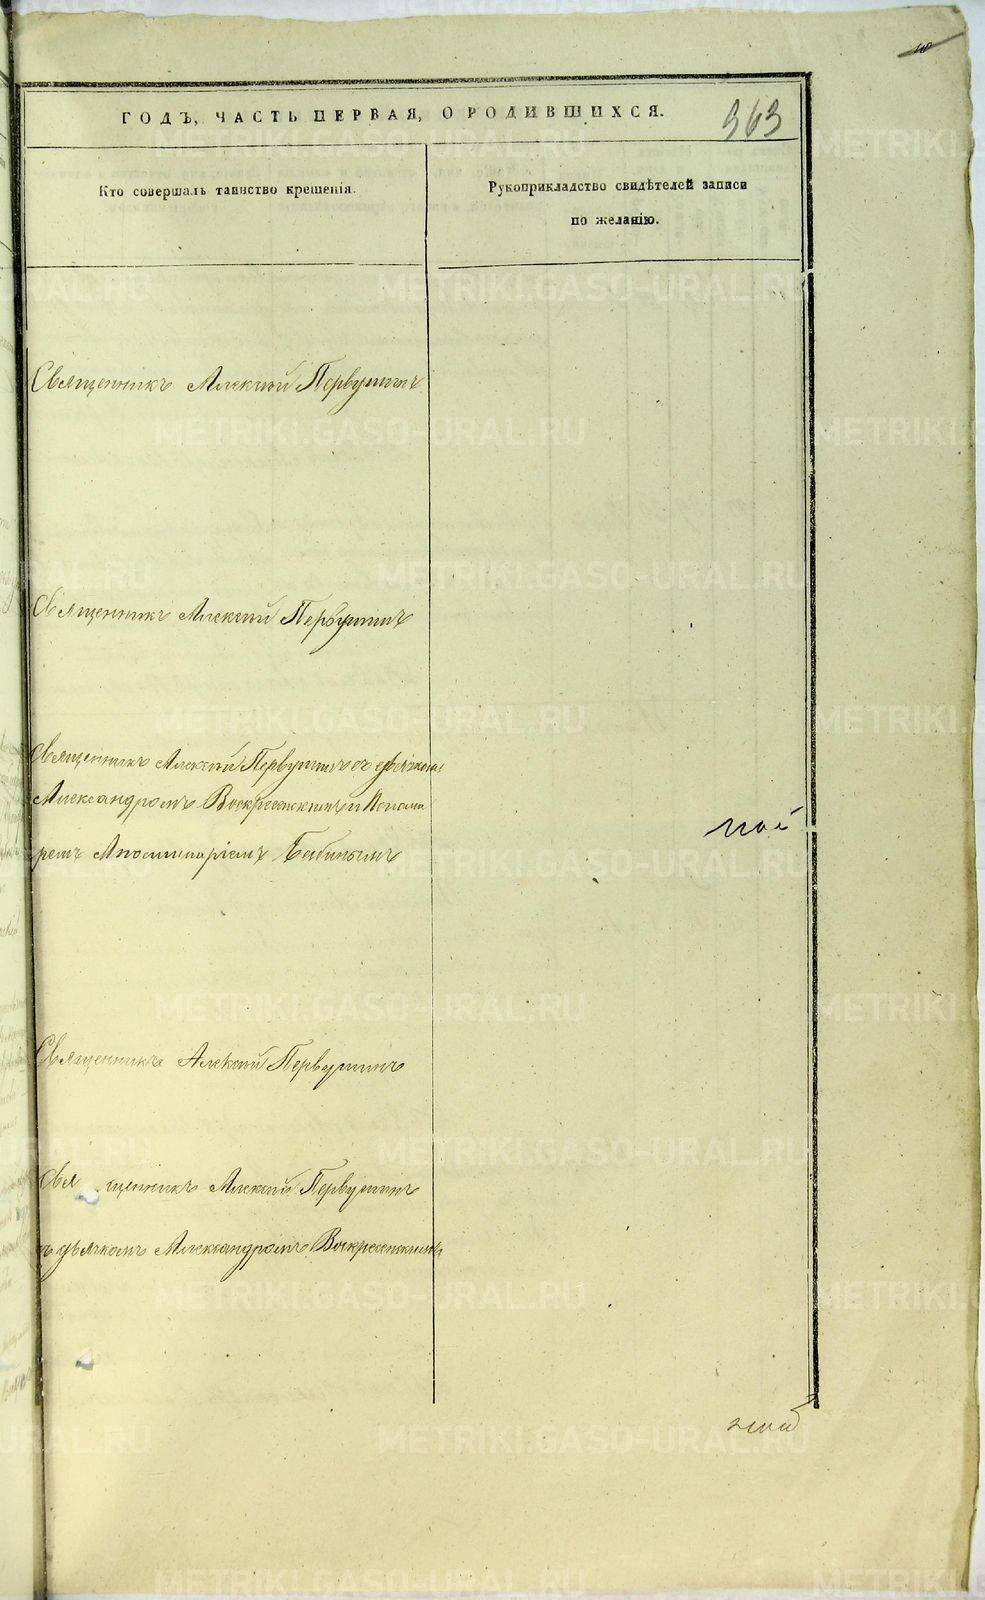 ГОДЪ, ЧАСТЬ ПЕРВАЯ, О РОДИВШИХСЯ.
363
Кто совершалъ таинство крещенія.
Рукоприкладство свидѣтелей записи
по желанію.
Священникъ Алексій Первушинъ
Священникъ Алексій Первушинъ
Священникъ Алексій Первушинъ съ дьячкомъ
Александромъ Воскресенскимъ и Понома
ремъ Аполлинаріемъ Бабинымъ
Священникъ Алексій Первушинъ
Священникъ Алексій Первушинъ
съ дьячкомъ Александромъ Воскресенскимъ
METRIKI.GASO-URAL.RU